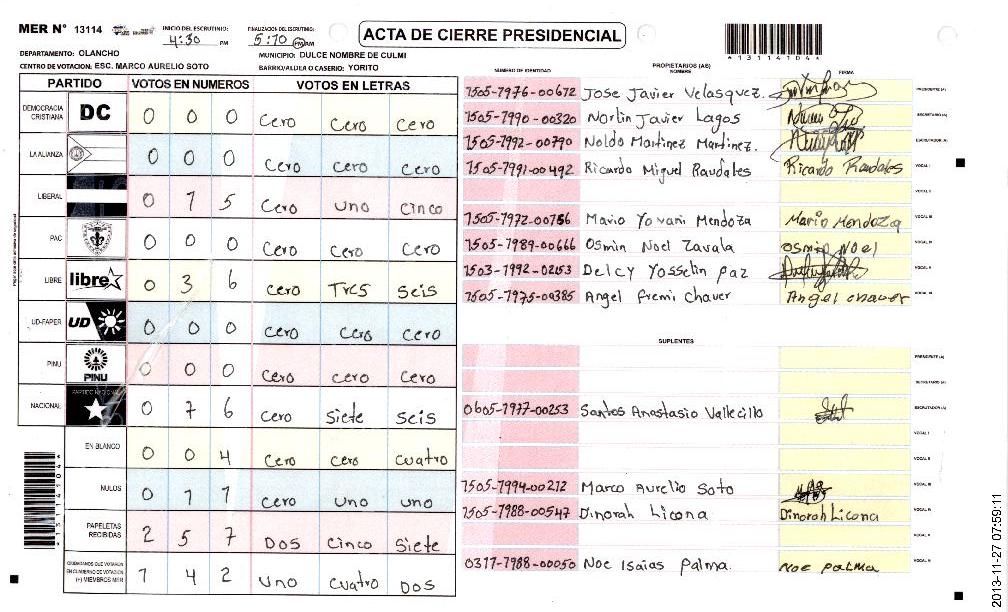 MER N° 13114
INICIO DEL ESCRUTINIO:
4:30 PM
FINALIZACIÓN DEL ESCRUTINIO:
5:10 PM AM
ACTA DE CIERRE PRESIDENCIAL
*1311404*
DEPARTAMENTO: OLANCHO
MUNICIPIO: DULCE NOMBRE DE CULMI
CENTRO DE VOTACION: ESC. MARCO AURELIO SOTO
BARRIO/ALDEA O CASERIO: YORITO
PARTIDO VOTOS EN NUMEROS VOTOS EN LETRAS
DEMOCRACIA CRISTIANA DC 0 0 0 Cero Cero Cero
LA ALIANZA 0 0 0 Cero Cero Cero
LIBERAL 0 1 5 Cero uno Cinco
PAC 0 0 0 Cero Cero Cero
LIBRE libre 0 3 6 Cero Tres Seis
UD-FAPER UD 0 0 0 Cero Cero Cero
PINU PINU 0 0 0 Cero Cero Cero
NACIONAL PARTIDO NACIONAL 0 7 6 Cero Siete Seis
EN BLANCO 0 0 4 Cero Cero Cuatro
NULOS 0 1 1 Cero uno uno
PAPELETAS RECIBIDAS 2 5 7 Dos Cinco Siete
CIUDADANOS QUE VOTARON EN CUADERNO DE VOTACION (+) MIEMBROS MER 1 4 2 uno cuatro Dos
PROPIETARIOS (AS)
NUMERO DE IDENTIDAD NOMBRE FIRMA
1505-1976-00672 Jose Javier Velasquez. PRESIDENTE (A)
1505-1990-00320 Norlin Javier Lagos SECRETARIO (A)
1505-1992-00790 Noldo Martinez Martinez. ESCRUTADOR (A)
1505-1991-00492 Ricardo Miguel Raudales Ricardo Raudales VOCAL I
VOCAL II
1505-1972-00156 Mario Yovani Mendoza Mario Mendoza VOCAL III
1505-1989-00666 Osmin Noel Zavala Osmin Noel VOCAL IV
1503-1992-02153 Delcy Yosselin Paz VOCAL V
1505-1975-00385 Angel Fremi Chaver Angel Chaver VOCAL VI
SUPLENTES
PRESIDENTE (A)
SECRETARIO (A)
0605-1977-00253 Santos Anastasio Vallecillo ESCRUTADOR (A)
VOCAL I
VOCAL II
1505-1994-00212 Marco Aurelio Soto VOCAL III
1505-1988-00547 Dinorah Licona Dinorah Licona VOCAL IV
VOCAL V
0317-1988-00050 Noe Isaias Palma. Noe Palma VOCAL VI
*1311404*
2013-11-27 07:59:11